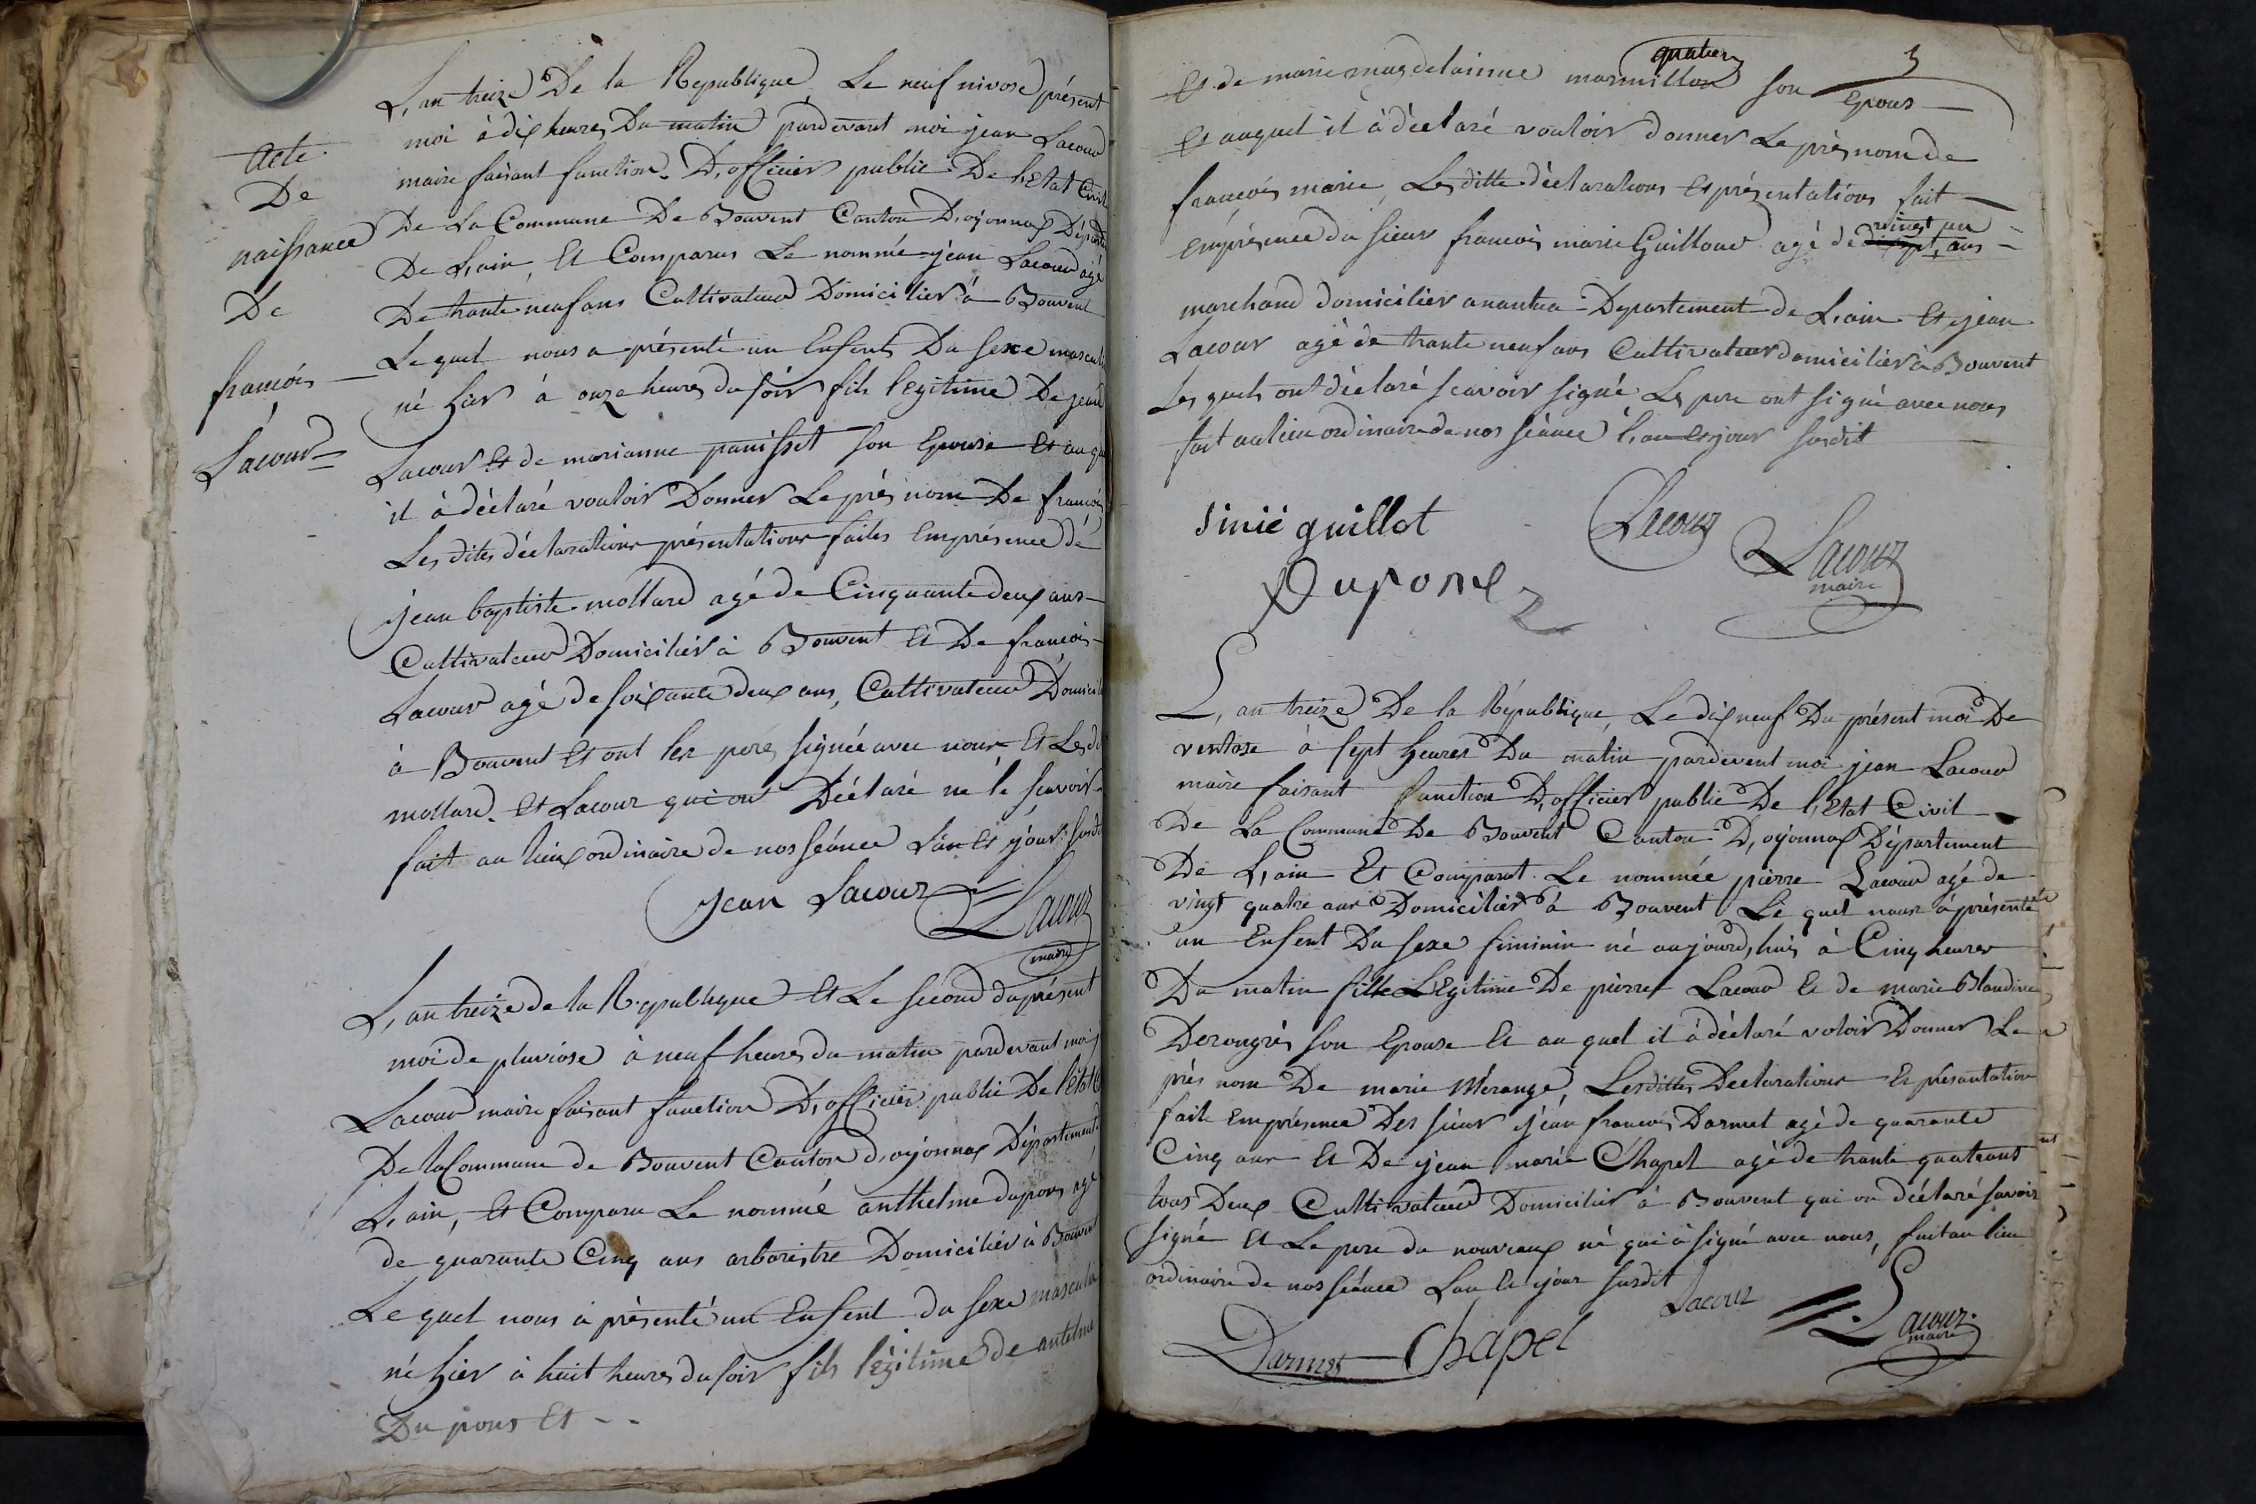 Acte
De
naissance
De
francois
Lacour
L, an treize De la Republique Le neuf nivose présent
moi à dix heures Du matin pardevant moi jean Lacour
maire faisant fonction D, officier public De L, Etat Civil
De La Commune De Bouvent Canton D, oyonnax Départe
De L, ain, Et Comparus Le nommé jean Lacour agé
De trante neuf ans Cultivateur Domicilier à Bouvent
Le quel nous a présenté un Enfent Du sexe mascul
né hier à onze heures du soir fils legitime De jean
Lacour Et de marianne panisset son Epouse Et au qu
il à déclaré vouloir Donner Le près nom De francois
Les dites déclarations présentations faites Emprésence de
jean baptiste mollard agé de Cinquante deux ans
Cultivateur Domicilier à Bouvent Et De francois
Lacour agé de soixante deux ans, Cultivateur Domicil
à Bouvent Et ont les pere signée avec nous Et Les d
mollard Et Lacour qui on Déclaré ne le scavoir
fait au lieu ordinaire de nos séance L'an Et jour susd
jean Lacour Lacour
maire
L, an treize de la Republique Et Le second du présent
moi de pluviose à neuf heures du matin pardevant moi j
Lacour maire faisant fonction D, officier public De l'état C
De la Commune de Bouvent Canton d, oyonnax Département
L, ain, Et Comparu Le nommé anthelme dupons agé
de quarante Cinq ans arboristre Domicilier à Bouvent
Le quel nous à présenté un Enfent du sexe masculin
né hier à huit heures du soir fils légitime de antelme
Du pons Et - -
3
Et de marie magdelainne marmillon son Epous
Et auquel il à déclaré vouloir donner Le près nom de
francois marie, Les ditte déclarations Et présentations fait
Emprésence du sieur francois marie Guilloud agé de vingt un ans
marchand domicilier anantua Departement de L, ain Et jean
Lacour agé de trante neuf ans Cultivateur domicilier à Bouvent
Les quels ont déclaré scavoir signé Le pere ont signé avec nous
fait au lieu ordinaire de nos séance l, an Et jour susdit
sinié guillot Lacour Lacour
maire
Dupone
L, an treize De la République, Le dix neuf Du présent moi De
ventose à sept heures Du matin pardevent moi jean Lacour
maire faisant fonction D, officier public De l, Etat Civil
De La Commune De Bouvent Canton D, oyonnax Département
De L, ain Et Comparut Le nommée pierre Lacour agé de
vingt quatre ans Domicilier à Bouvent Le quel nous à présenté
un Enfent Du sexe feminin né aujourd, huis à Cinq heures
Du matin fille Légitime De pierre Lacour Et de marie Blandine
Derongrès son Epouse Et au quel il à déclaré voloir Donner Le
près nom De marie Mérange, Lesdittes Declarations Et présantation
fait Emprésence Des sieur jean francois Darmet agé de quarante
Cinq ans Et De jean marie Chapel agé de trante quatre ans
tous Deux Cultivateur Domicilier à Bouvent qui on déclaré savoir
signé Et Le pere du nouveaux né qui à signé avec nous, fait au lieu
ordinaire de nos séance Lan Et jour susdit
Lacour Lacour
maire
Darmet Chapel